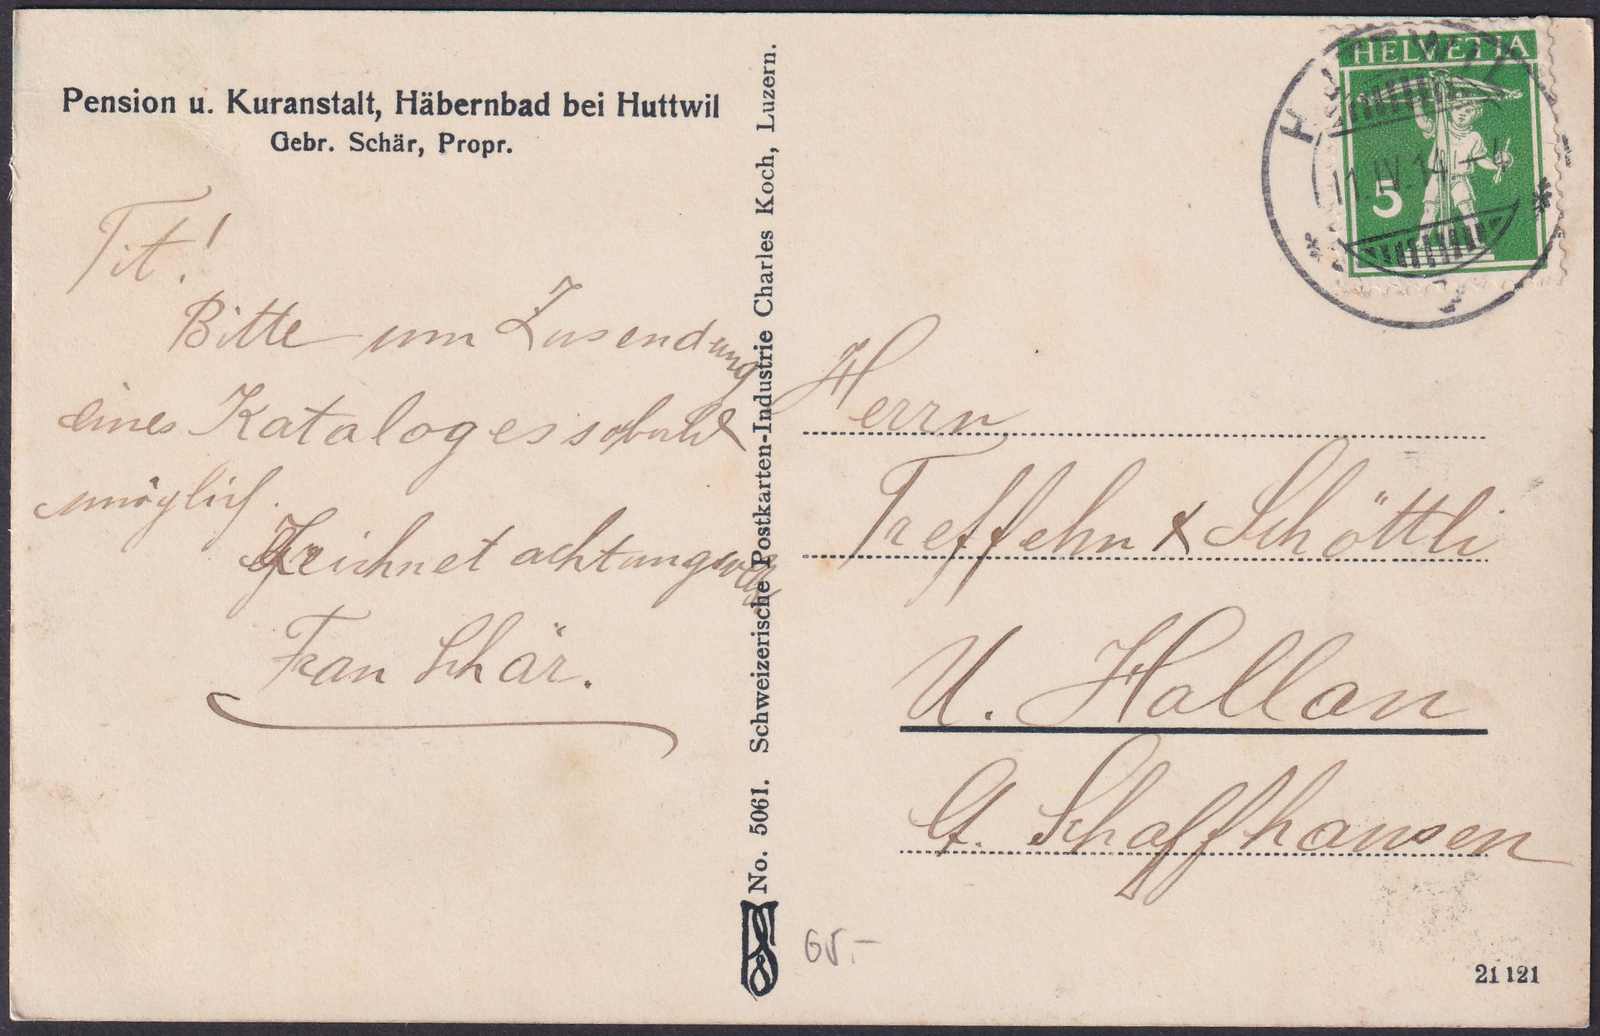 Pension u. Kuranstalt, Häbernbad bei Huttwil
Gebr. Schär, Propr.
Tit!
Bitte um Zusendung
eines Kataloges sobald
möglich.
Zeichnet achtungsvoll
Frau Schär.
No. 5061. Schweizerische Postkarten-Industrie Charles Koch, Luzern.
HELVETIA
5
HUTTWIL
11.IV.14
Herrn
Treffehn & Schöttli
U. Hallau
Ct. Schaffhausen
65.-
21 121